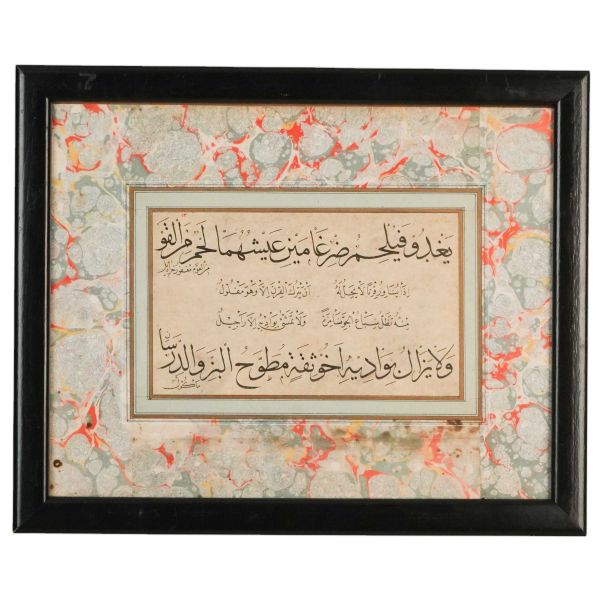 يغدو فيلحم ضرغامين عيشهما لحم من القو
م معفور خراديل
إذا يساور قرنا لا يحل له أن يترك القرن إلا وهو مفلول
منه تظل سباع الجو ضامرة ولا تمشى بواديه الأراجيل
ولا يزال بواديه أخو ثقة مطرح البز والدرسا
ن مأكول